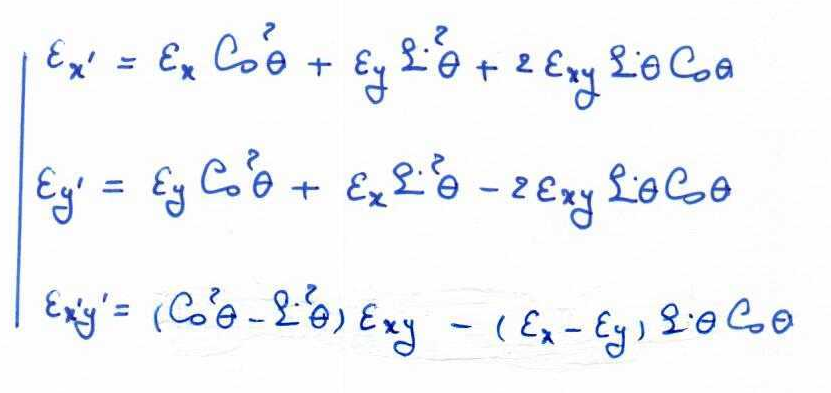 εx' = εx Cos²θ + εy Si²θ + 2 εxy SiθCosθ
εy' = εy Cos²θ + εx Si²θ - 2 εxy SiθCosθ
εx'y' = (Cos²θ - Si²θ) εxy - (εx - εy) SiθCosθ